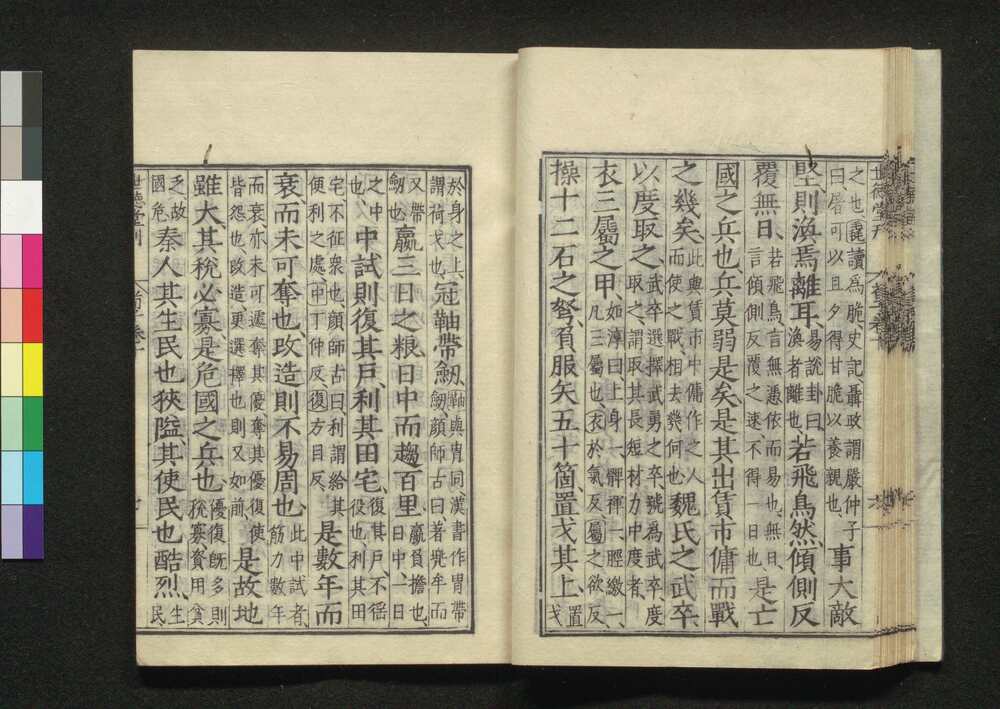 之也毳讀爲脆史記聶政謂嚴仲子
曰屠可以旦夕得甘脆以養親也
事大敵
堅則渙焉離耳
易說卦曰
渙者離也
若飛鳥然傾側反
覆無日
若飛鳥言無憑依而易也無日
言傾側反覆之速不得一日也
是亡
國之兵也兵莫弱是矣是其出賃市傭而戰
之幾矣
此與賃市中傭作之人
而使之戰相去幾何也
魏氏之武卒
以度取之
武卒選擇武勇之卒號爲武卒度
取之謂取其長短材力中度者
衣三屬之甲
如淳曰上身一髀褌一脛繳一
凡三屬也衣於氣反屬之欲反
操十二石之弩負服矢五十箇置戈其上
置
戈
於身之上
謂荷戈也
冠䩜帶劒
䩜與冑同漢書作冑帶
劒顔師古曰著兠牟而
又帶
劒也
羸三日之粮日中而趨百里
羸負擔也
日中一日
之中
也
中試則復其戶利其田宅
復其戶不徭
役也利其田
宅不征衆也顔師古曰利謂給其
便利之處中丁仲反復方目反
是數年而
衰而未可奪也改造則不易周也
此中試者
筋力數年
而衰亦未可遽奪其優復使
皆怨也改造更選擇也則又如前
是故地
雖大其稅必寡是危國之兵也
優復旣多則
稅寡資用貧
乏故
國危
秦人其生民也狹隘其使民也酷烈
生
民
世德堂刊